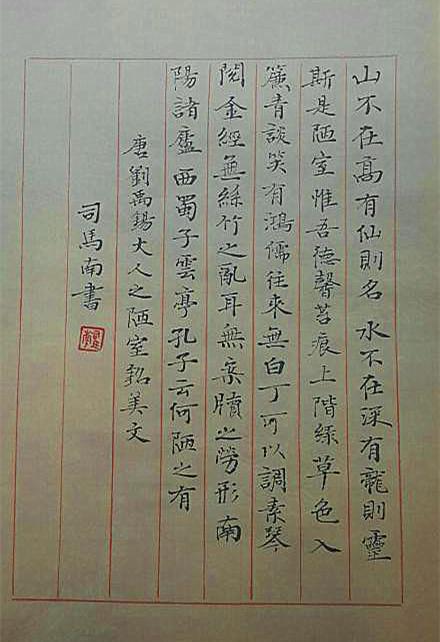 山不在高有仙則名水不在深有龍則靈
斯是陋室惟吾德馨苔痕上階綠草色入
簾青談笑有鴻儒往來無白丁可以調素琴
閱金經無絲竹之亂耳無案牘之勞形南
陽諸廬西蜀子雲亭孔子云何陋之有
唐劉禹錫大人之陋室銘美文
司馬南書